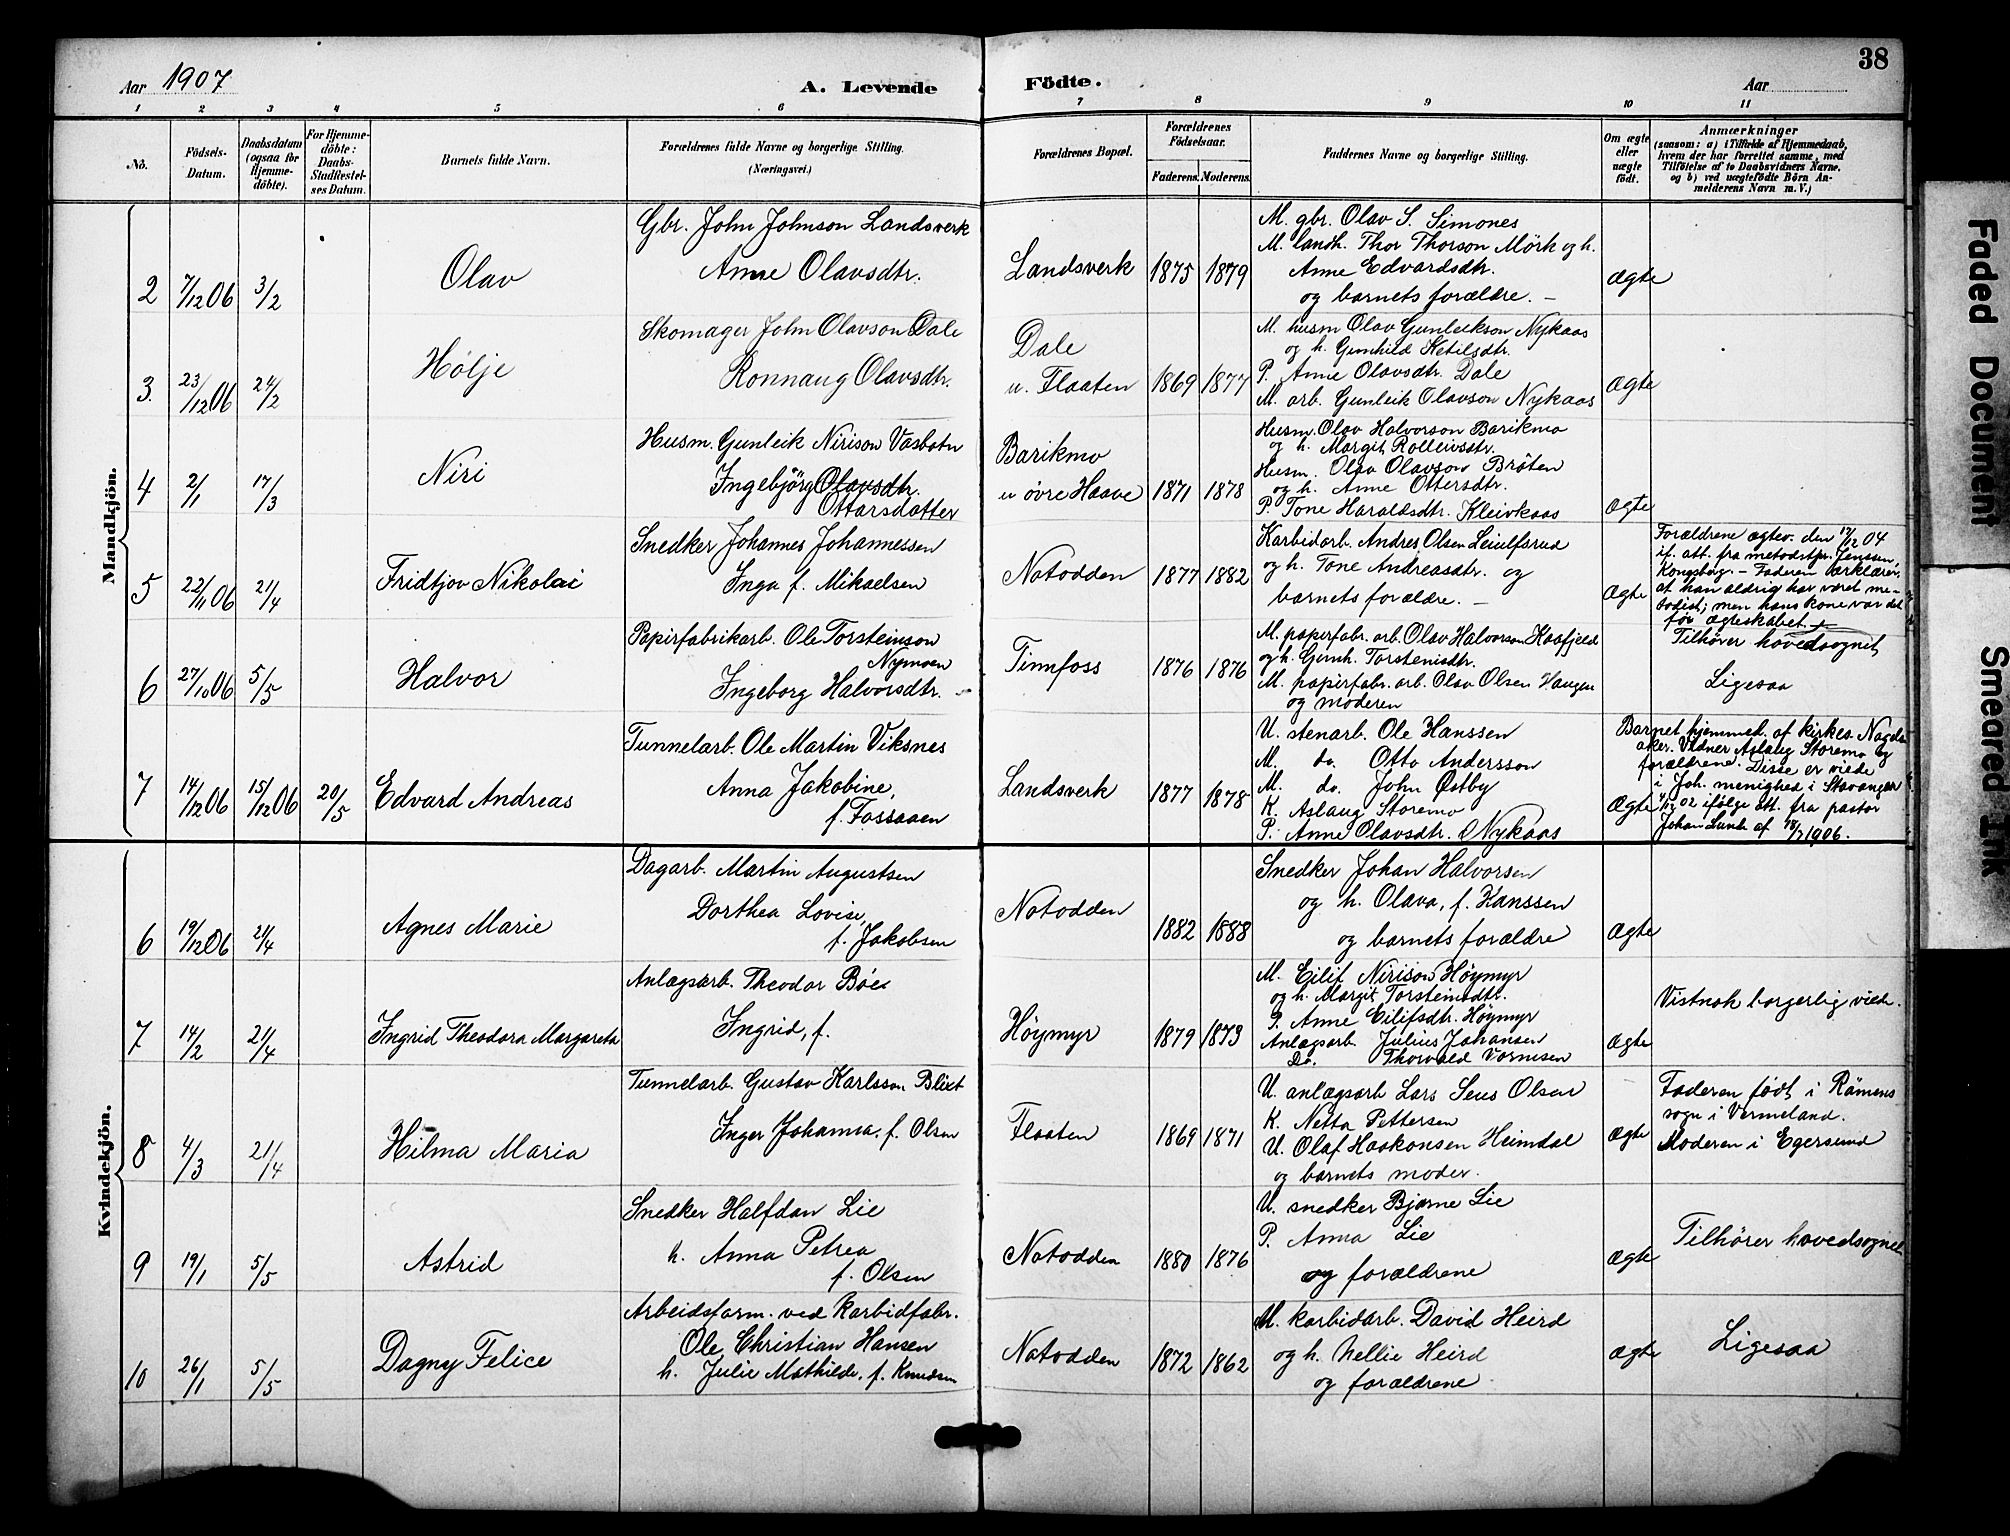 38
Aar 1907
A. Levende Födte.
Aar
1 2 3 4 5 6 7 8 9 10 11
No.
Födsels-Datum.
Daabsdatum (ogsaa for Hjemme-döbte).
For Hjemme-döbte: Daabs-Stadfæstel-ses Datum.
Barnets fulde Navn.
Forældrenes fulde Navne og borgerlige Stilling.
(Næringsvei.)
Forældrenes Bopæl.
Forældrenes Födselsaar.
Faderens. Moderens.
Faddernes Navne og borgerlige Stilling.
Om ægte eller uægte födt.
Anmærkninger
(saasom: a) i Tilfælde af Hjemmedaab,
hvem der har forrettet samme, med
Tilföielse af to Daabsvidners Navne.
og b) ved uægtefödte Börn An-
melderens Navn m. V.)
Mandkjön.
2 7/12 06 3/2
Olav
Gbr. John Johnson Landsverk
Anne Olavsdtr.
Landsverk 1875 1879
M. gbr. Olav S. Simones
M. landh. Thor Thorson Mörk og h.
Anne Edvardsdtr.
og barnets forældre. –
Ægte
3. 23/12 06 24/2
Hölje
Skomager John Olavson Dale
Ronnaug Olavsdtr.
Dale
u. Flaaten 1869 1877
M. husm Olav Gunleikson Nykaas
og h. Gunhild Ketilsdtr.
P. Anne Olavsdtr. Dale
M. arb. Gunleik Olavson Nykaas
Ægte
4 2/1 17/3
Niri
Husm. Gunleik Nirison Vasbotn
Ingebjörg Olavsdtr.
Ottarsdatter
Barikmo
u øvre Haave 1871 1878
Husm. Olav Halvorson Barikmo
og h. Margit Rolleivsdtr.
Husm. Olav Olavson Bröten
og h. Anne Ottersdtr.
P. Tone Haraldsdtr. Kleivkaas
Ægte
5 22/11 06 21/4
Fridtjov Nikolai
Snedker Johannes Johannessen
Inga f. Mikaelsen
Notodden 1877 1882
Karbidarb. Andres Olsen Leiulfsrud
og h. Tone Andreasdtr. og
barnets forældre. –
Ægte
Forældrene ægtev. den 17/12 04
if. att. fra metodistpr. Jenssen,
Kongsberg. – Faderen erklærer,
at han aldrig har været me-
todist; men hans kone var det
før ægteskabet.
6 27/10 06 5/5
Halvor
Papirfabrikarb. Ole Torsteinson
Nymoen
Ingeborg Halvorsdtr.
Tinnfoss 1876 1876
M. papirfabr. arb. Olav Halvorson Kaafjeld
og h. Gunh. Torstensdtr.
M. papirfabr. arb. Olav Olsen Haugen
og moderen
Tilhører hovedsognet
Ligesaa
7 14/12 06 15/12 06 20/5
Edvard Andreas
Tunnelarb. Ole Martin Viksnes
Anna Jakobine,
f. Fossaaen
Landsverk 1877 1878
U. stenarb. Ole Hanssen
M. do. Otto Andersson
M. do. John Østby
K. Aslaug Storemo
P. Anne Olavsdtr. Nykaas
Ægte
Barnet hjemmed. af kirkes. Nagds
aker. Vidner Aslaug Storemo og
forældrene. Disse er viede
i Joh. menighed i Stavanger
02 ifølge att. fra pastor
Johan Lunde af 18/7 1906.
Kvindekjön.
6 19/12 06 21/4
Agnes Marie
Dagarb. Martin Augustsen
Dorthea Lovise
f. Jakobsen
Notodden
1882 1888
Snedker Johan Halvorsen
og h. Olava, f. Hanssen
og barnets forældre
Ægte
7 14/2 21/4
Ingrid Theodora Margareta
Anlægsarb. Theodor Böes
Ingrid, f.
Höymyr 1879 1873
M. Eilif Nirison Höymyr
og h. Margit Torsteinsdtr.
P. Anne Eilifsdtr. Höymyr
Anlægsarb. Julius Johansen
Do. Thorvald Vormsen
Ægte
Vistnok borgerlig viede.
8 4/3 21/4
Hilma Maria
Tunnelarb. Gustav Karlsson Blixt
Inger Johanna, f. Olsen
Flaaten 1869 1871
U. anlægsarb Lars Seus Olsen
K. Netta Pettersen
U. Olaf Haakonsen Heimdal
og barnets moder.
Ægte
Faderen født i Rämens
sogn i Vermeland.
Moderen i Egersund
9 19/1 5/5
Astrid
Snedker Halfdan Lie
h. Anna Petrea
f. Olsen
Notodden 1880 1876
U. snedker Bjarne Lie
P. Anna Lie
og forældrene
Ægte
Tilhører hovedsognet
10 26/1 5/5
Dagny Felice
Arbeidsform. ved Karbidfabr.
Ole Christian Hansen
h. Julie Mathilde, f. Knudsen
Notodden 1872 1862
M. karbidarb. David Heird
og h. Nellie Heird
og forældrene
Ægte
Ligesaa
Faded Document
Smeared Ink